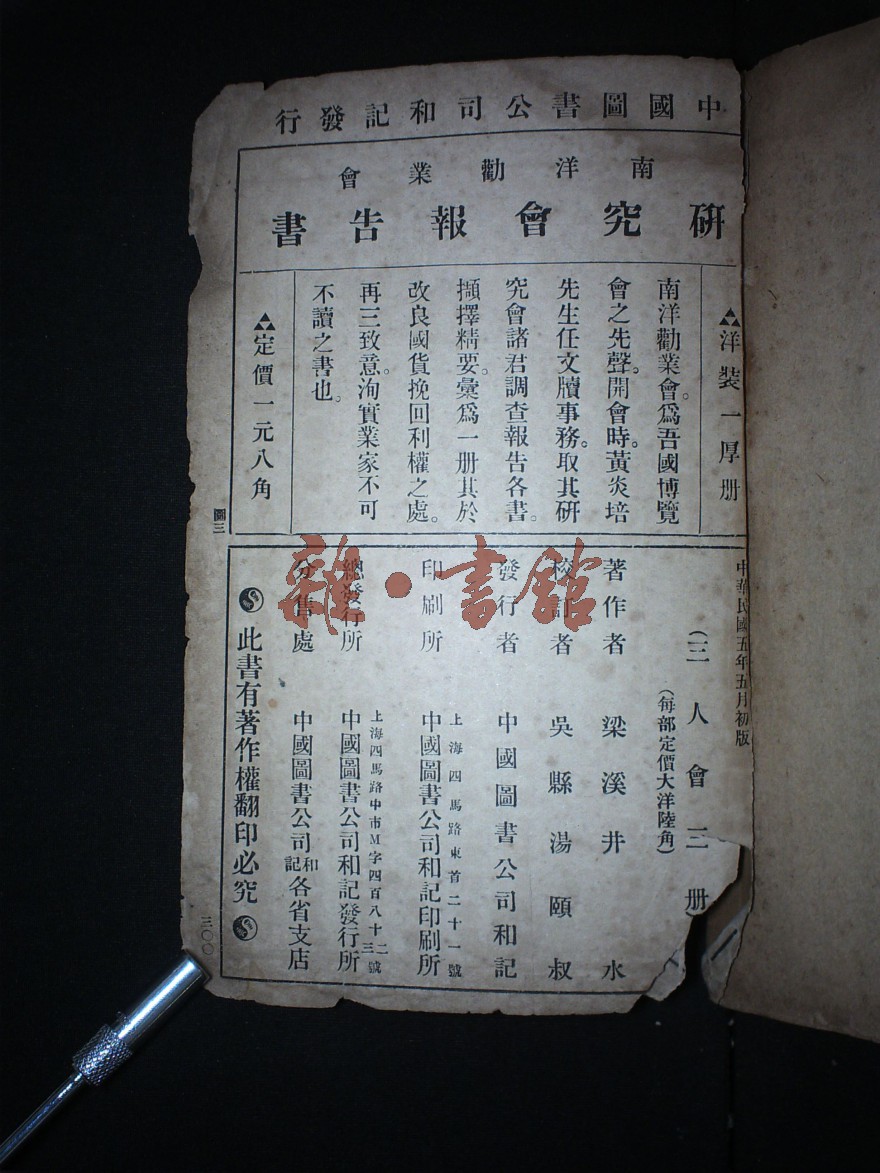 中國圖書公司和記發行
南洋勸業會
研究會報告書
洋裝一厚册
南洋勸業會。爲吾國博覽
會之先聲。開會時。黃炎培
先生任文牘事務。取其研
究會諸君調查報告各書。
擷擇精要。彙爲一册其於
改良國貨挽回利權之處。
再三致意。洵實業家不可
不讀之書也。
定價一元八角
圖三
中華民國五年五月初版
(三人會三册
(每部定價大洋陸角)
著作者 梁溪井水
校訂者 吳縣湯頤叔
發行者 中國圖書公司和記
上海四馬路東首二十一號
印刷所 中國圖書公司和記印刷所
上海四馬路中市M字四百八十二三號
總發行所 中國圖書公司和記發行所
分售處 中國圖書公司和記各省支店
此書有著作權翻印必究
三〇〇
雜·書館